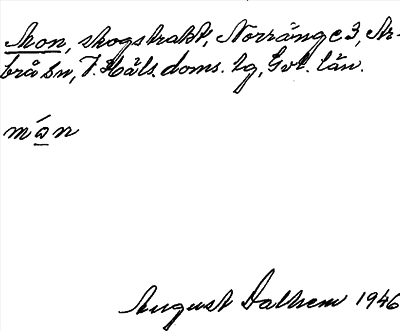 Mon, skogstrakt, Norränge 3, Ar-
brå sn, V. Häls. doms. hg, Gvl. län.
mán
August Dalhem 1946